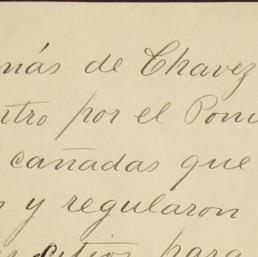 más de Chavez
ntro por el
cañadas que
y regularon
sitios para